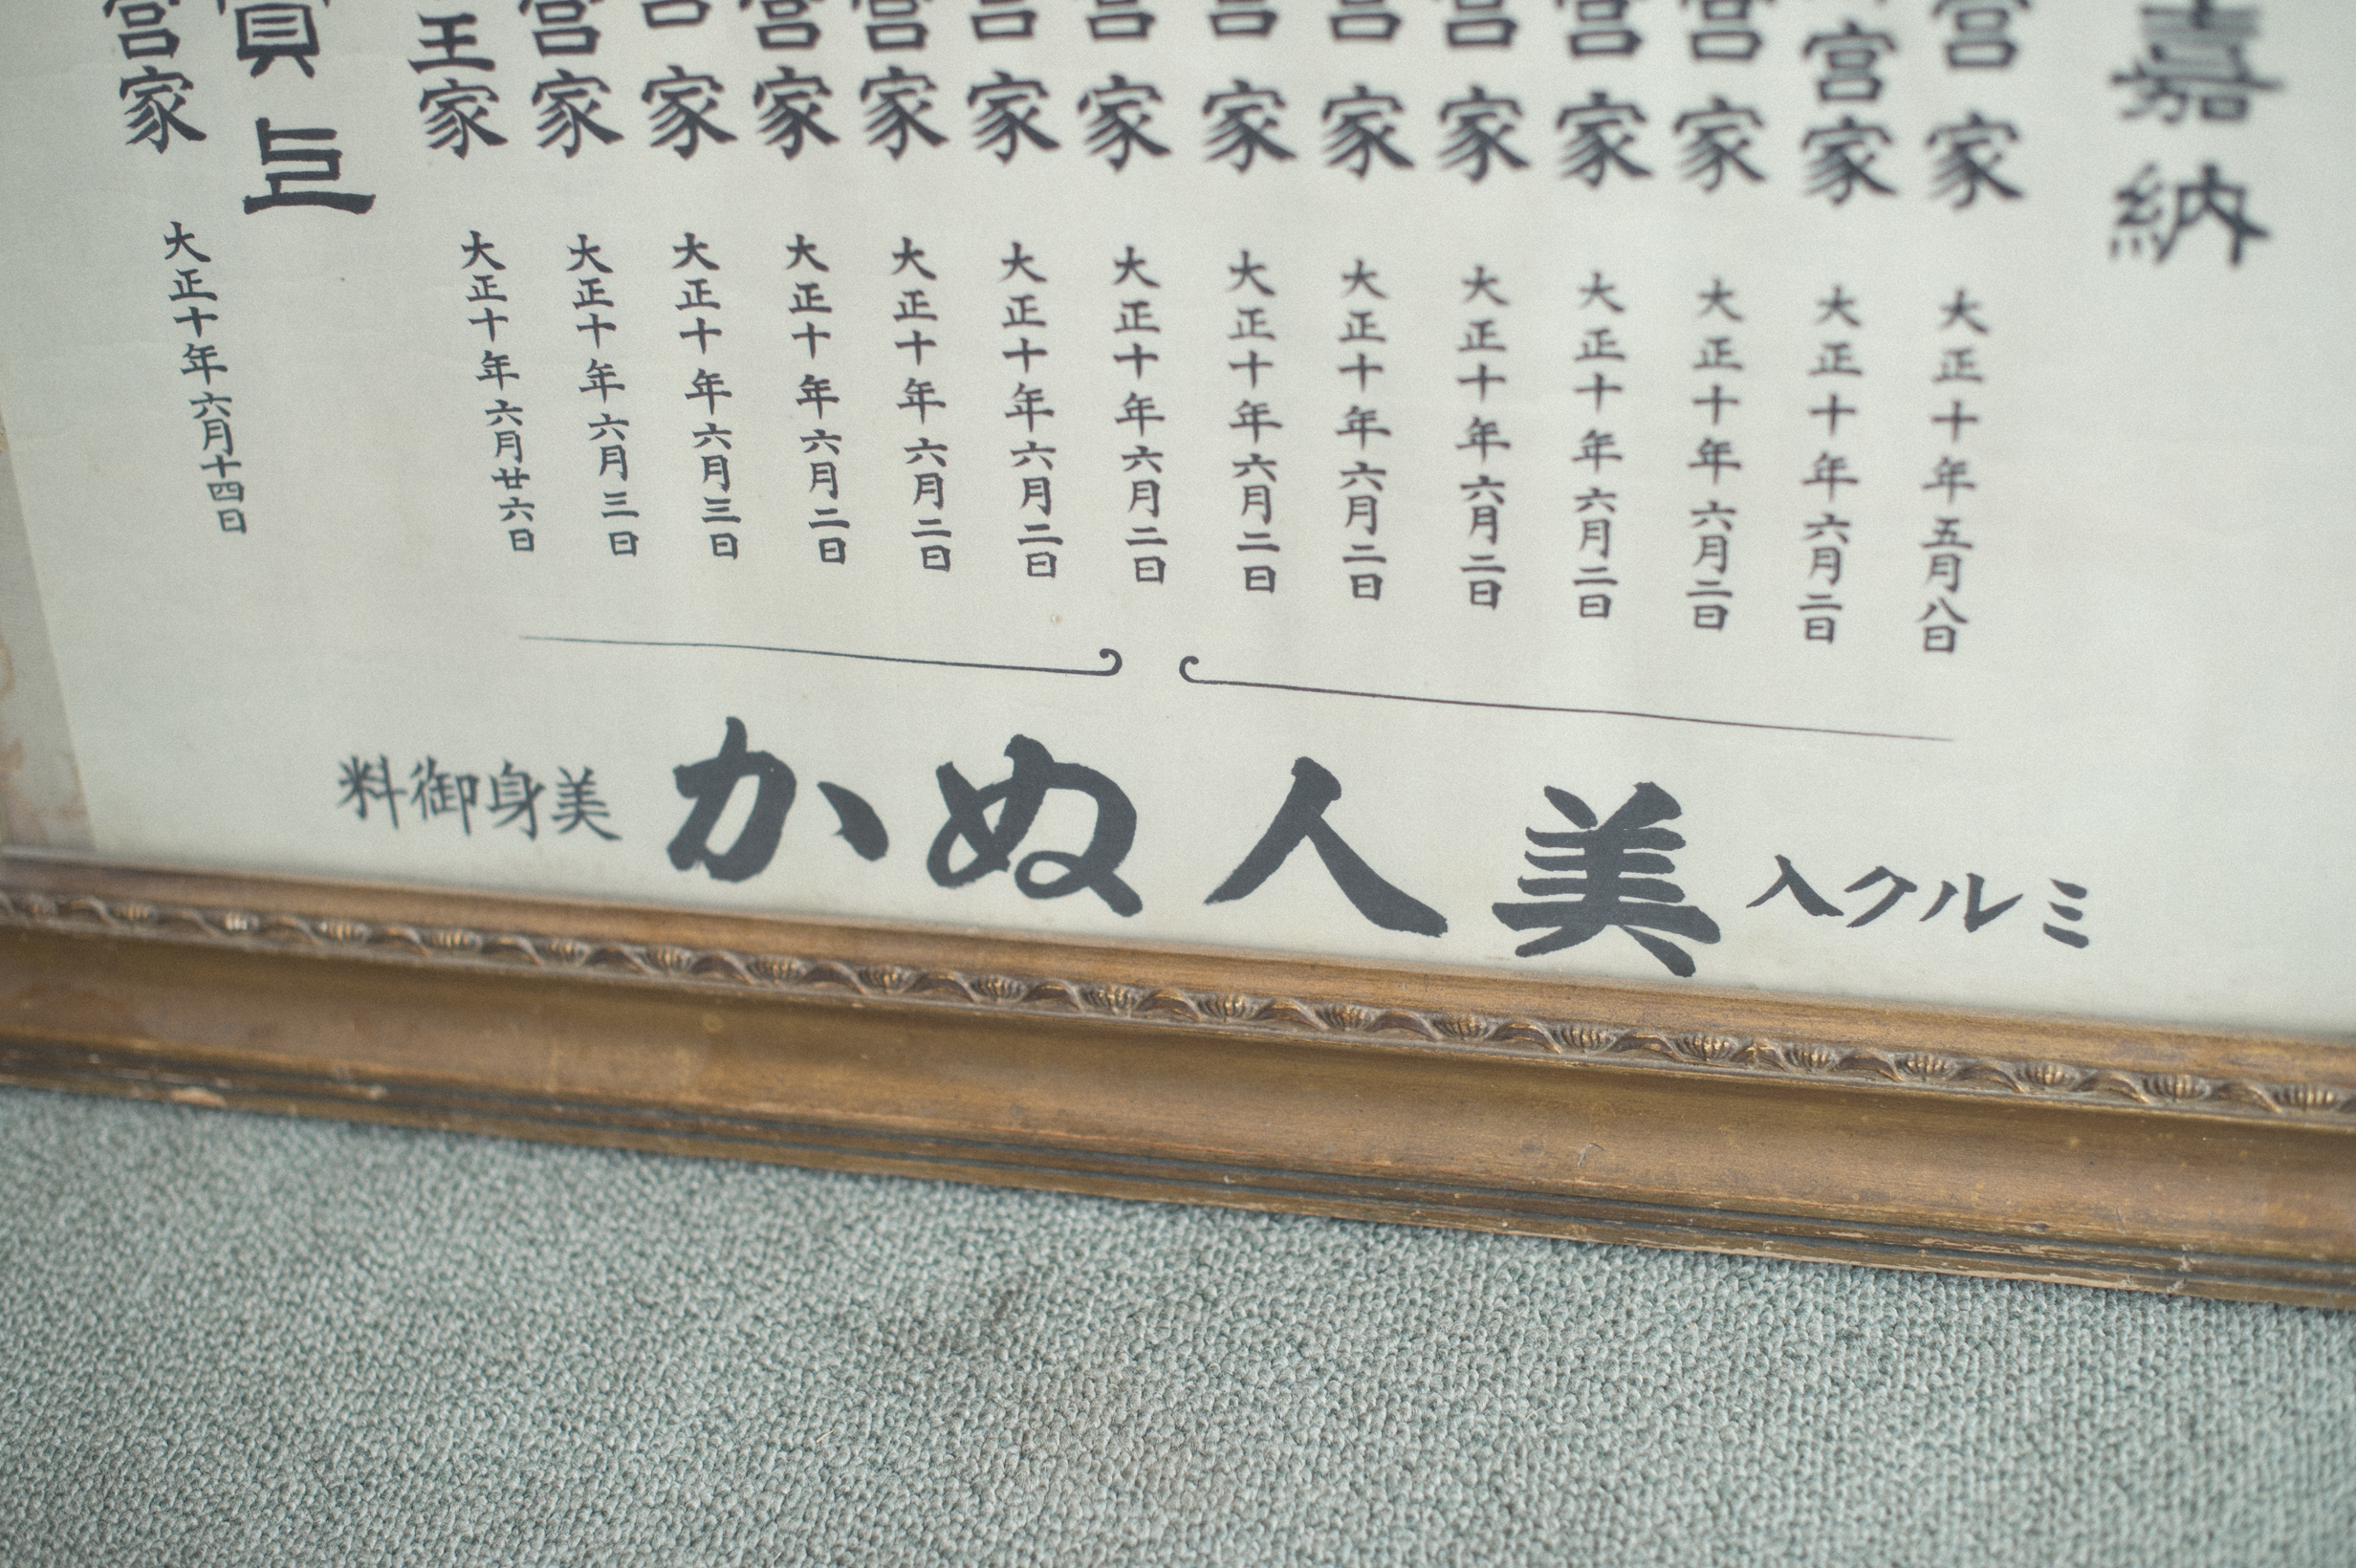 嘉納
宮家 大正十年五月八日
宮家 大正十年六月二日
宮家 大正十年六月二日
宮家 大正十年六月二日
宮家 大正十年六月二日
宮家 大正十年六月二日
宮家 大正十年六月二日
宮家 大正十年六月二日
宮家 大正十年六月二日
宮家 大正十年六月二日
宮家 大正十年六月二日
宮家 大正十年六月三日
宮家 大正十年六月三日
王家 大正十年六月廿六日
宮家 大正十年六月十四日
ミルク入 美人ぬか 美身御料